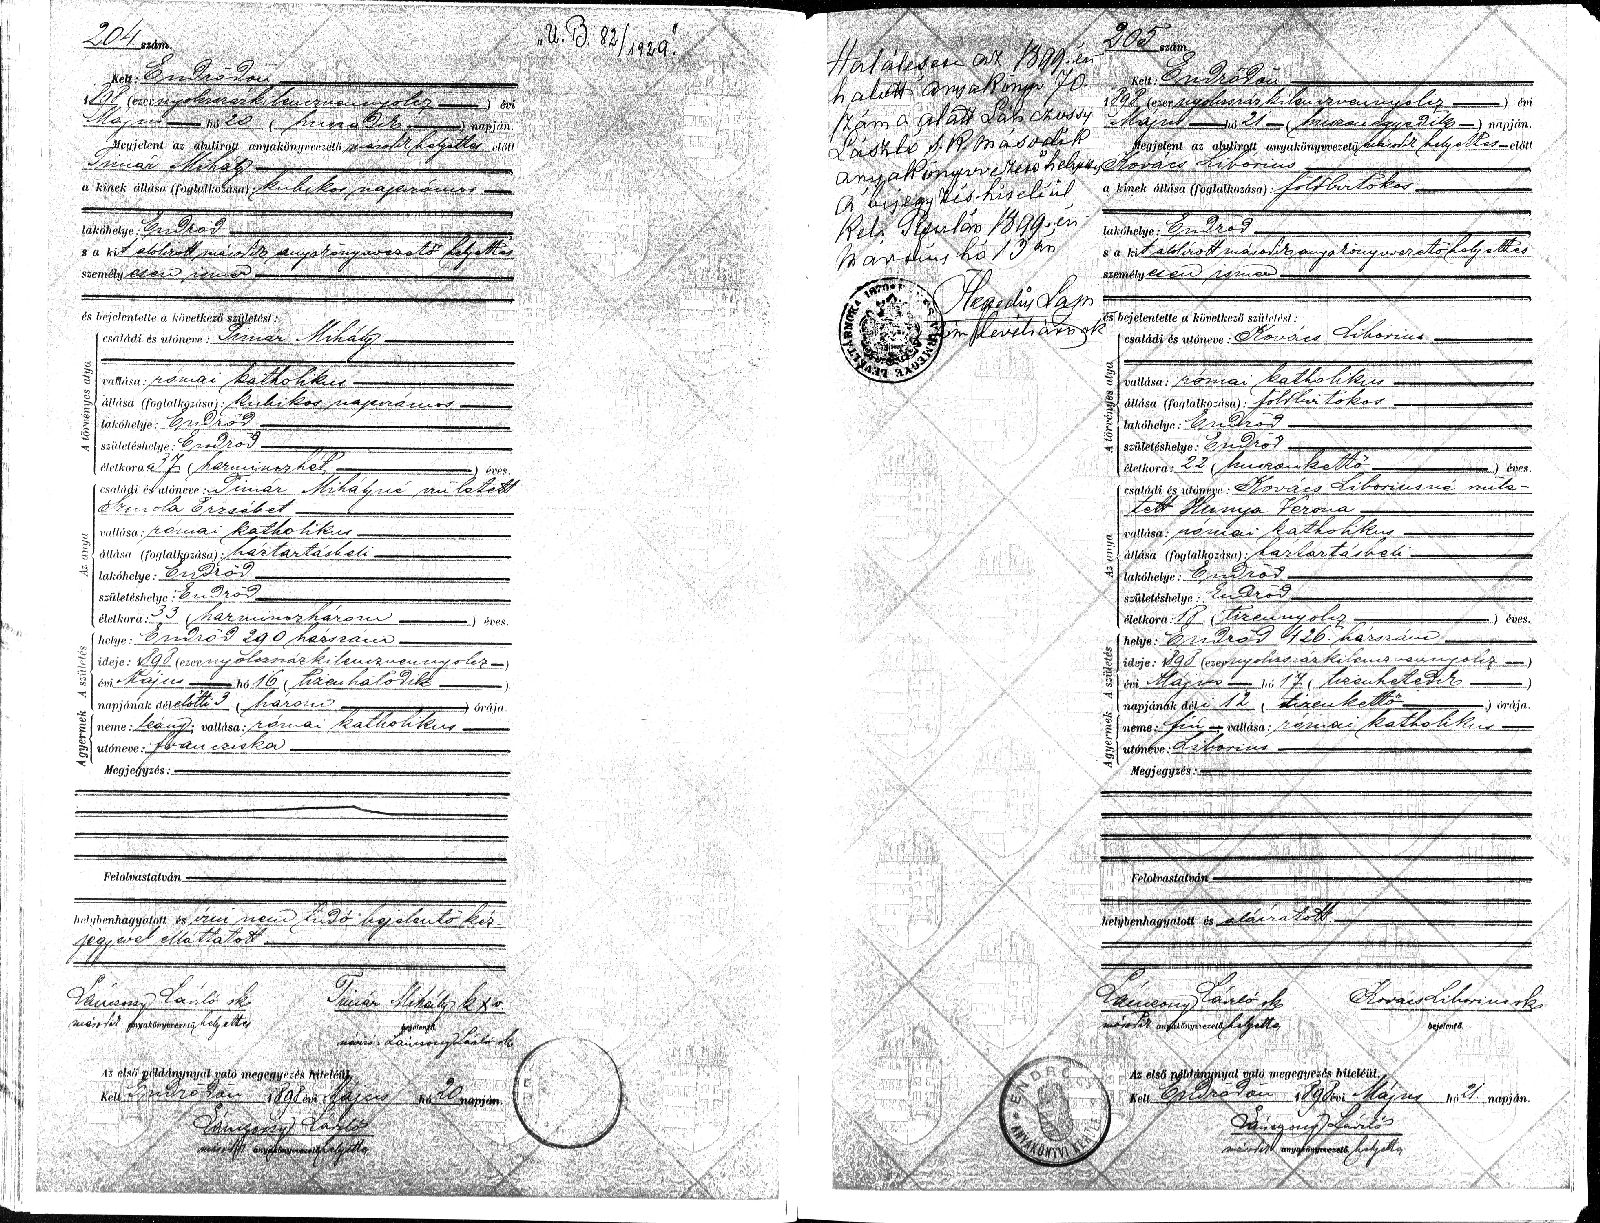 204 szám.
„U. B. 82/1929."
Kelt: Endrődön
1898 (ezernyolczszázkilenczvennyolcz) évi
Május hó 20 (huszadik) napján.
Megjelent az alulirott anyakönyvvezető másodk helyettes előtt
Timár Mihály
a kinek állása (foglalkozása) kubikos napszámos
lakóhelye: Endrőd
s a kit alulirott második anyakönyvvezető helyettes
személyesen ismer
és bejelentette a következő születést:
A törvényes atya
családi és utóneve: Timár Mihály
vallása: római katholikus
állása (foglalkozása): kubikos napszámos
lakóhelye: Endrőd
születéshelye: Endrőd
életkora: 37 (harminczhét) éves.
Az anya
családi és utóneve: Timár Mihályné született
Erzsébet
vallása: római katholikus
állása (foglalkozása): háztartásbeli
lakóhelye: Endrőd
születéshelye: Endrőd
életkora: 33 (harminczhárom) éves.
A születés
helye: Endrőd 290 házszám
ideje: 1898 (ezernyolczszázkilenczvennyolcz)
évi Május hó 16 (tizenhatodik)
napjának délelőtti 3 (három) órája.
A gyermek
neme: leány; vallása: római katholikus
utóneve: Franciska
Megjegyzés:
Felolvastatván
helybenhagyatott és írni nem tudó bejelentő kéz-
jegyével elláttatott
Lánczony László sk
második anyakönyvvezető helyettes
Timár Mihály k x v.
bejelentő.
Lánczony László sk
Az első példánynyal való megegyezés hiteléül.
Kelt Endrődön 1898 évi Május hó 20 napján.
Lánczony László
második anyakönyvvezető helyettes
205 szám
Halálesete az 1899. évi
halotti anyakönyv 70
szám a alatt
László s. k. második
anyakönyvvezető helyettes
a bejegyzés hiteléül
Kelt Gyulán 1899. évi
március hó 13 án
Hegedűs Lajos
Kelt: Endrődön
1898 (ezernyolczszázkilenczvennyolcz) évi
Május hó 21 (huszonegyedik) napján.
Megjelent az alulirott anyakönyvvezető másodk helyettes előtt
Kovács Liborius
a kinek állása (foglalkozása): földbirtokos
lakóhelye: Endrőd
s a kit alulirott második anyakönyvvezető helyettes
személyesen ismer
és bejelentette a következő születést:
A törvényes atya
családi és utóneve: Kovács Liborius
vallása: római katholikus
állása (foglalkozása): földbirtokos
lakóhelye: Endrőd
születéshelye: Endrőd
életkora: 22 (huszonkettő) éves.
Az anya
családi és utóneve: Kovács Liboriusné szüle-
tett Hunya Verona
vallása: római katholikus
állása (foglalkozása): háztartásbeli
lakóhelye: Endrőd
születéshelye: Endrőd
életkora: 18 (tizennyolcz) éves.
A születés
helye: Endrőd 426 házszám
ideje: 1898 (ezernyolczszázkilenczvennyolcz)
évi Május hó 17 (tizenhetedik)
napjának déli 12 (tizenkettő) órája.
A gyermek
neme: fiú; vallása: római katholikus
utóneve: Liborius
Megjegyzés:
Felolvastatván
helybenhagyatott és aláiratott
Lánczony László sk
második anyakönyvvezető helyettes
Kovács Liborius sk
bejelentő.
ENDRŐD
ANYAKÖNYVI KERÜLET
Az első példánynyal való megegyezés hiteléül.
Kelt Endrődön 1898 évi Május hó 21 napján.
Lánczony László
második anyakönyvvezető helyettes